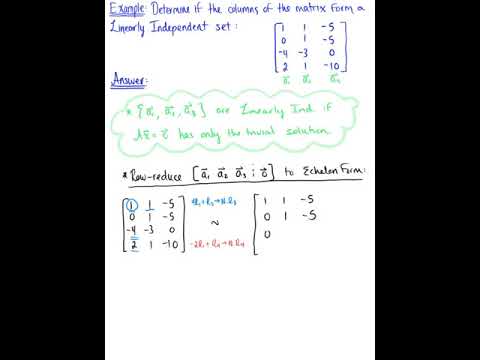 Example: Determine if the columns of the matrix form a
Linearly Independent set:
1 1 -5
0 1 -5
-4 -3 0
2 1 -10
a₁ a₂ a₃
Answer:
* {a₁, a₂, a₃} are Linearly Ind. if
Ax = 0 has only the trivial solution.
* Row-reduce [a₁ a₂ a₃ ⋮ 0] to Echelon Form:
1 1 -5 4R₁ + R₃ → N.R₃ 1 1 -5
0 1 -5 0 1 -5
-4 -3 0 ~ 0
2 1 -10 -2R₁ + R₄ → N.R₄